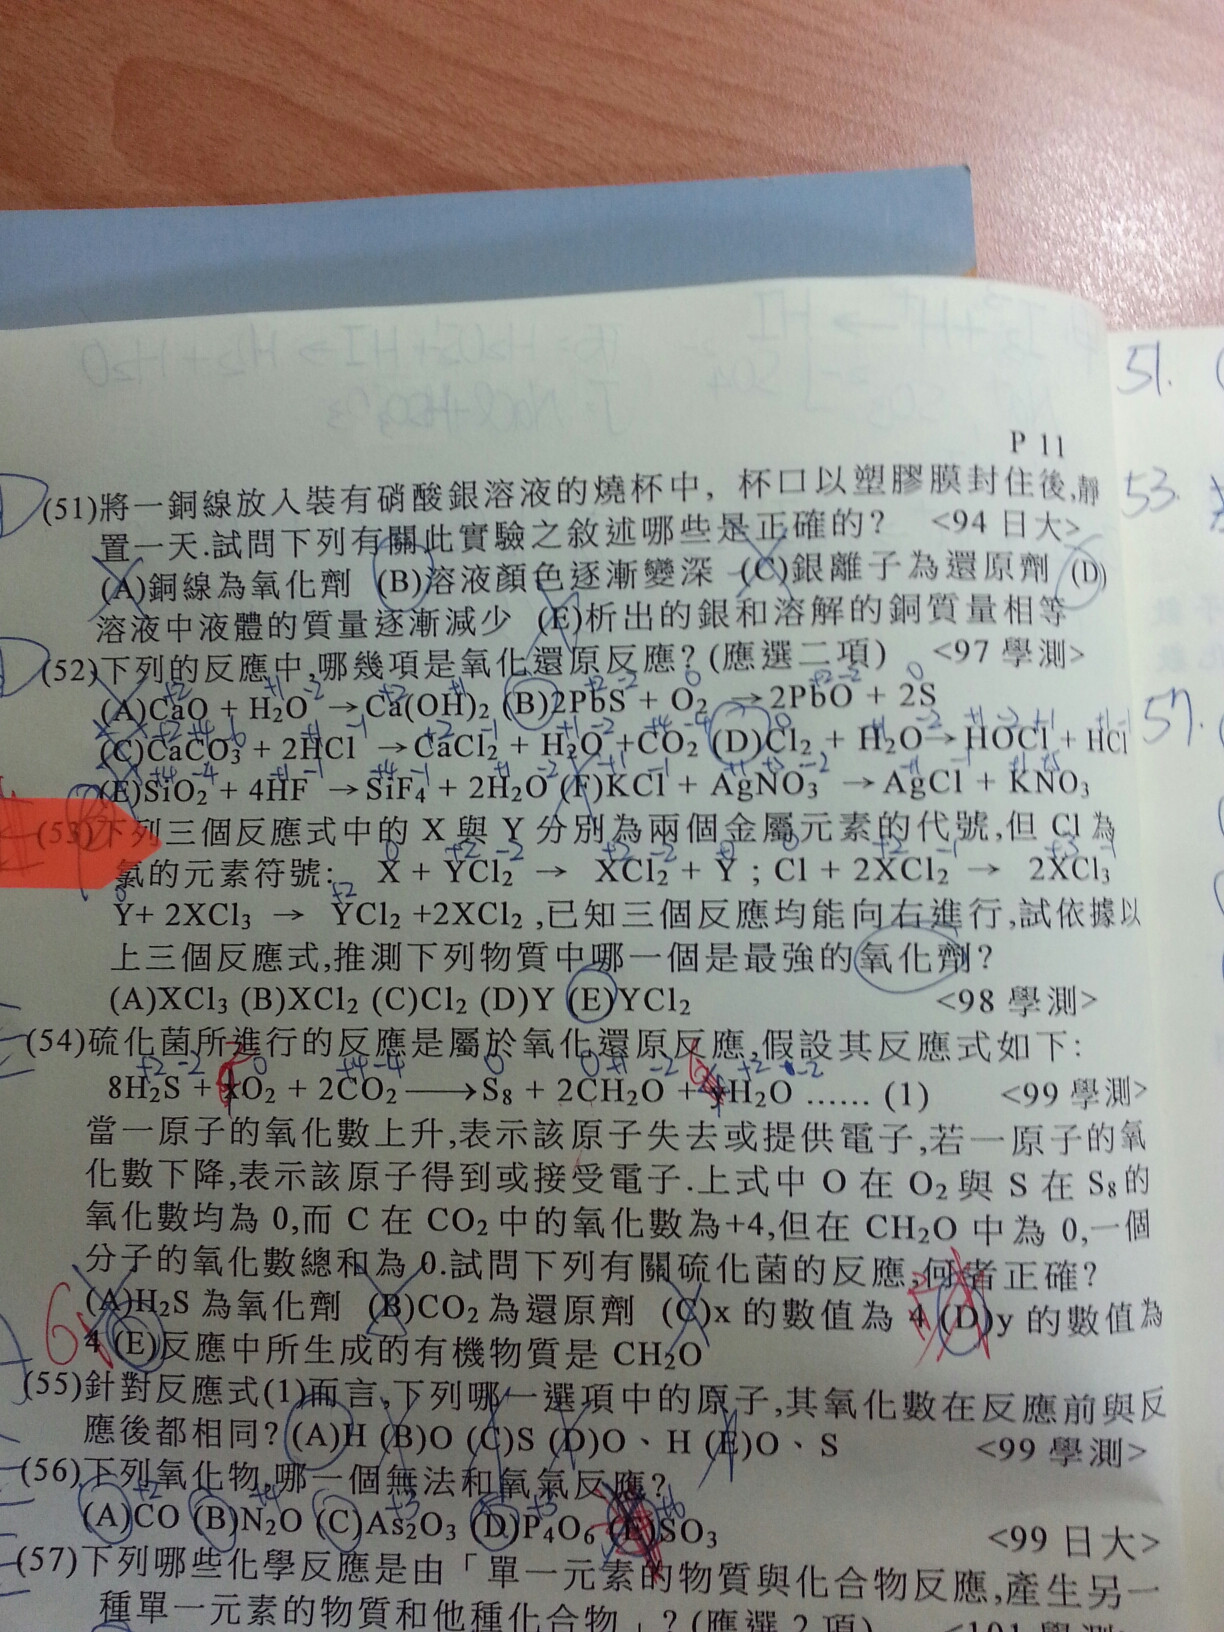 P 11
51.
(51)將一銅線放入裝有硝酸銀溶液的燒杯中, 杯口以塑膠膜封住後,靜
53.
置一天.試問下列有關此實驗之敘述哪些是正確的? <94 日大>
(A)銅線為氧化劑 (B)溶液顏色逐漸變深 (C)銀離子為還原劑 (D)
溶液中液體的質量逐漸減少 (E)析出的銀和溶解的銅質量相等
(52)下列的反應中,哪幾項是氧化還原反應? (應選二項) <97 學測>
(A)CaO + H₂O → Ca(OH)₂ (B)2PbS + O₂ → 2PbO + 2S
57.
(C)CaCO₃ + 2HCl → CaCl₂ + H₂O + CO₂ (D)Cl₂ + H₂O → HOCl + HCl
(E)SiO₂ + 4HF → SiF₄ + 2H₂O (F)KCl + AgNO₃ → AgCl + KNO₃
(53)下列三個反應式中的 X 與 Y 分別為兩個金屬元素的代號,但 Cl 為
氯的元素符號: X + YCl₂ → XCl₂ + Y ; Cl + 2XCl₂ → 2XCl₃
Y+ 2XCl₃ → YCl₂ +2XCl₂ ,已知三個反應均能向右進行,試依據以
上三個反應式,推測下列物質中哪一個是最強的氧化劑?
(A)XCl₃ (B)XCl₂ (C)Cl₂ (D)Y (E)YCl₂ <98 學測>
(54)硫化菌所進行的反應是屬於氧化還原反應,假設其反應式如下:
8H₂S + xO₂ + 2CO₂ ⟶ S₈ + 2CH₂O + yH₂O …… (1) <99 學測>
當一原子的氧化數上升,表示該原子失去或提供電子,若一原子的氧
化數下降,表示該原子得到或接受電子.上式中 O 在 O₂ 與 S 在 S₈ 的
氧化數均為 0,而 C 在 CO₂ 中的氧化數為+4,但在 CH₂O 中為 0,一個
分子的氧化數總和為 0.試問下列有關硫化菌的反應,何者正確?
(A)H₂S 為氧化劑 (B)CO₂ 為還原劑 (C)x 的數值為 4 (D)y 的數值為
4 (E)反應中所生成的有機物質是 CH₂O
(55)針對反應式(1)而言,下列哪一選項中的原子,其氧化數在反應前與反
應後都相同? (A)H (B)O (C)S (D)O、H (E)O、S <99 學測>
(56)下列氧化物,哪一個無法和氧氣反應?
(A)CO (B)N₂O (C)As₂O₃ (D)P₄O₆ (E)SO₃ <99 日大>
(57)下列哪些化學反應是由「單一元素的物質與化合物反應,產生另一
種單一元素的物質和他種化合物」? (應選 2 項) <101 學測>